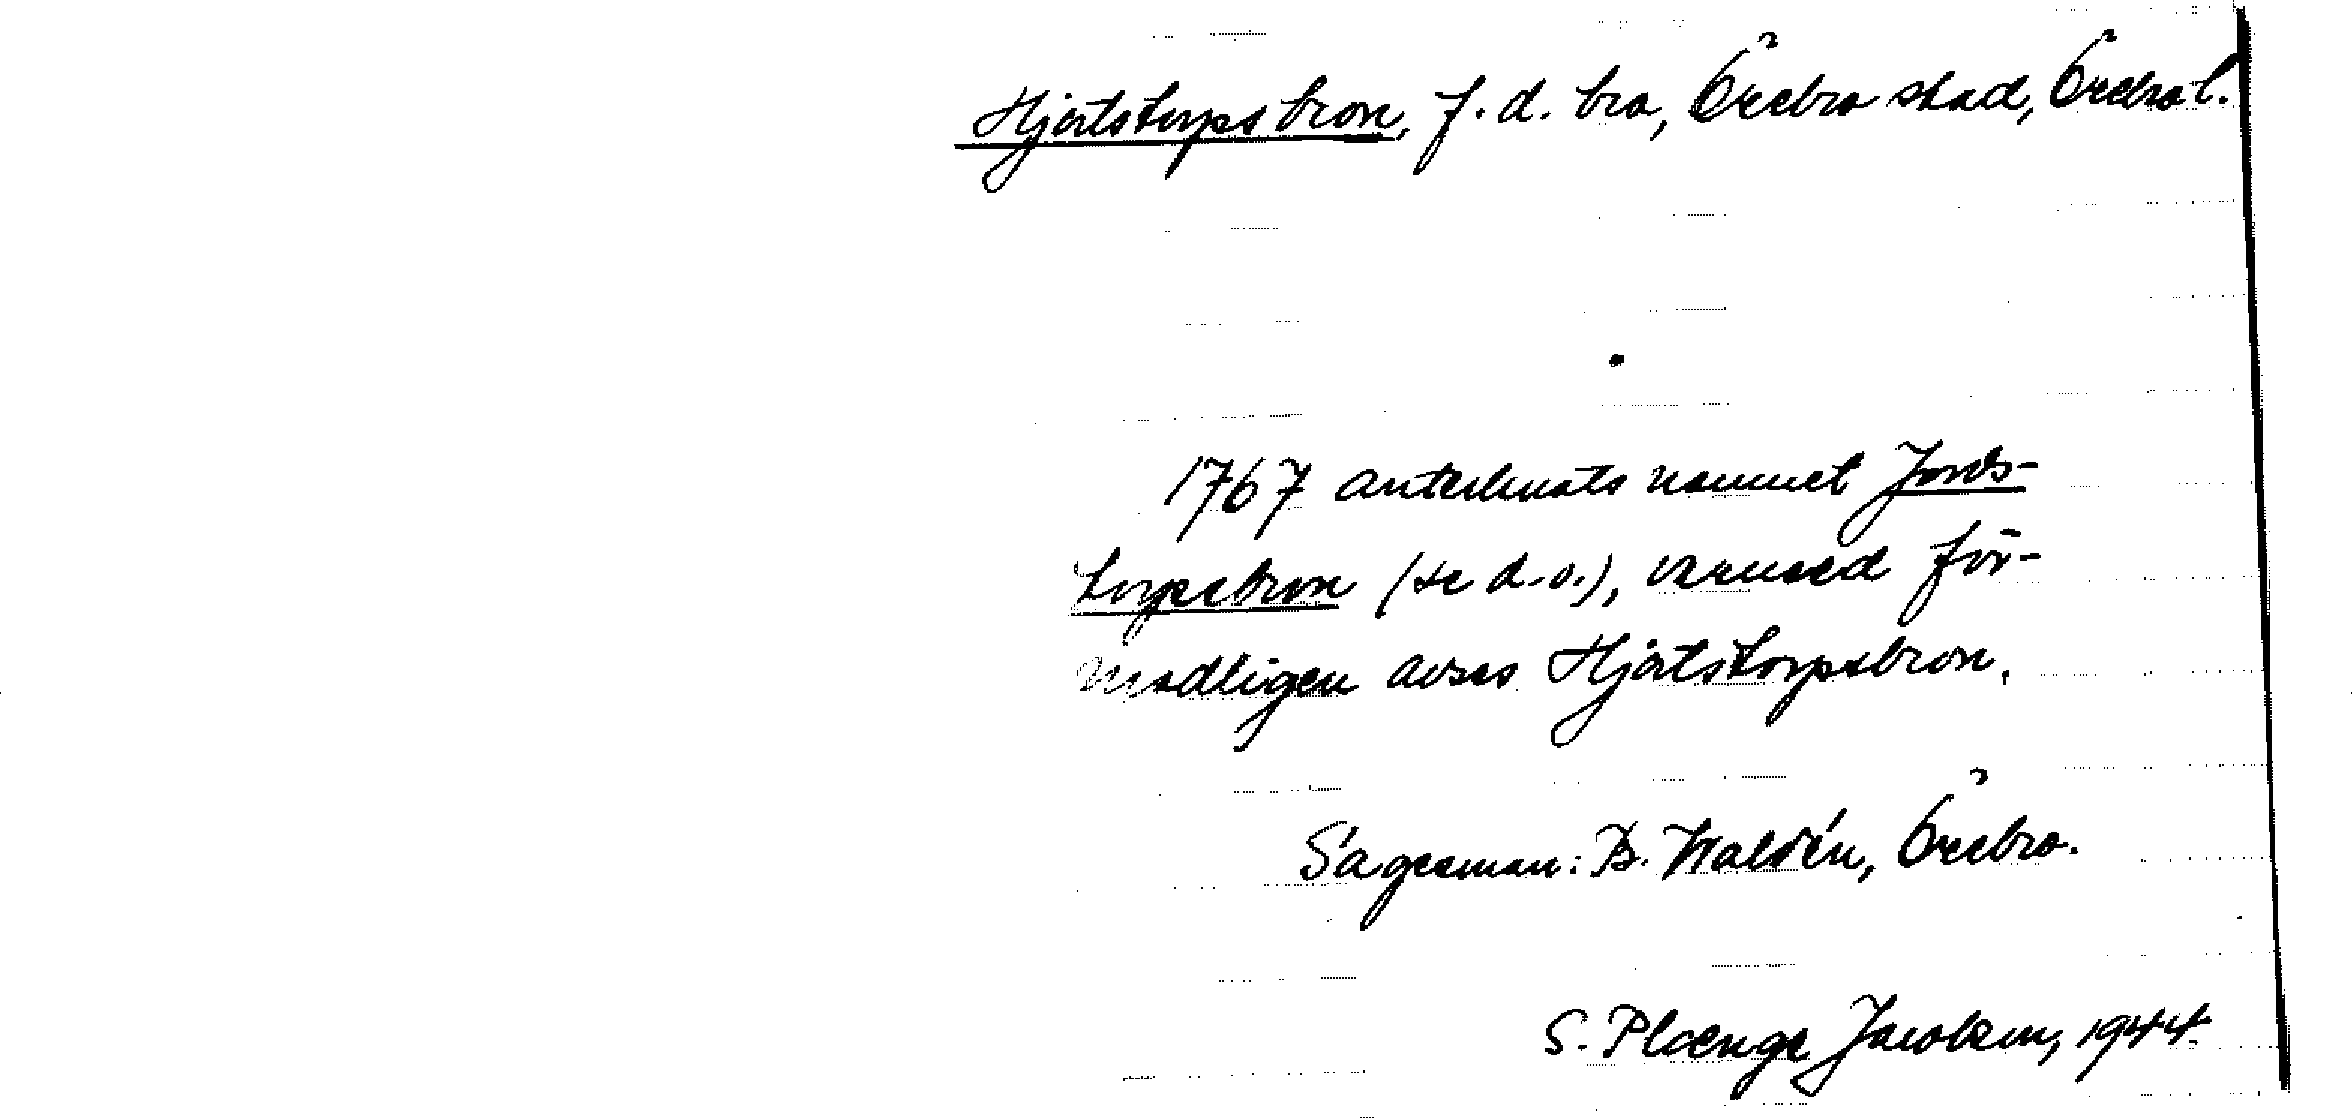 Hjälstorpsbron, f. d. bro, Örebro stad, Örebro l.
1767 antecknats namnet Jords-
torpsbron (se d. o.), varmed för-
modligen avses Hjälstorpsbron.
Sagesman: B. Waldén, Örebro.
S. Plænge Jacobson, 1944.